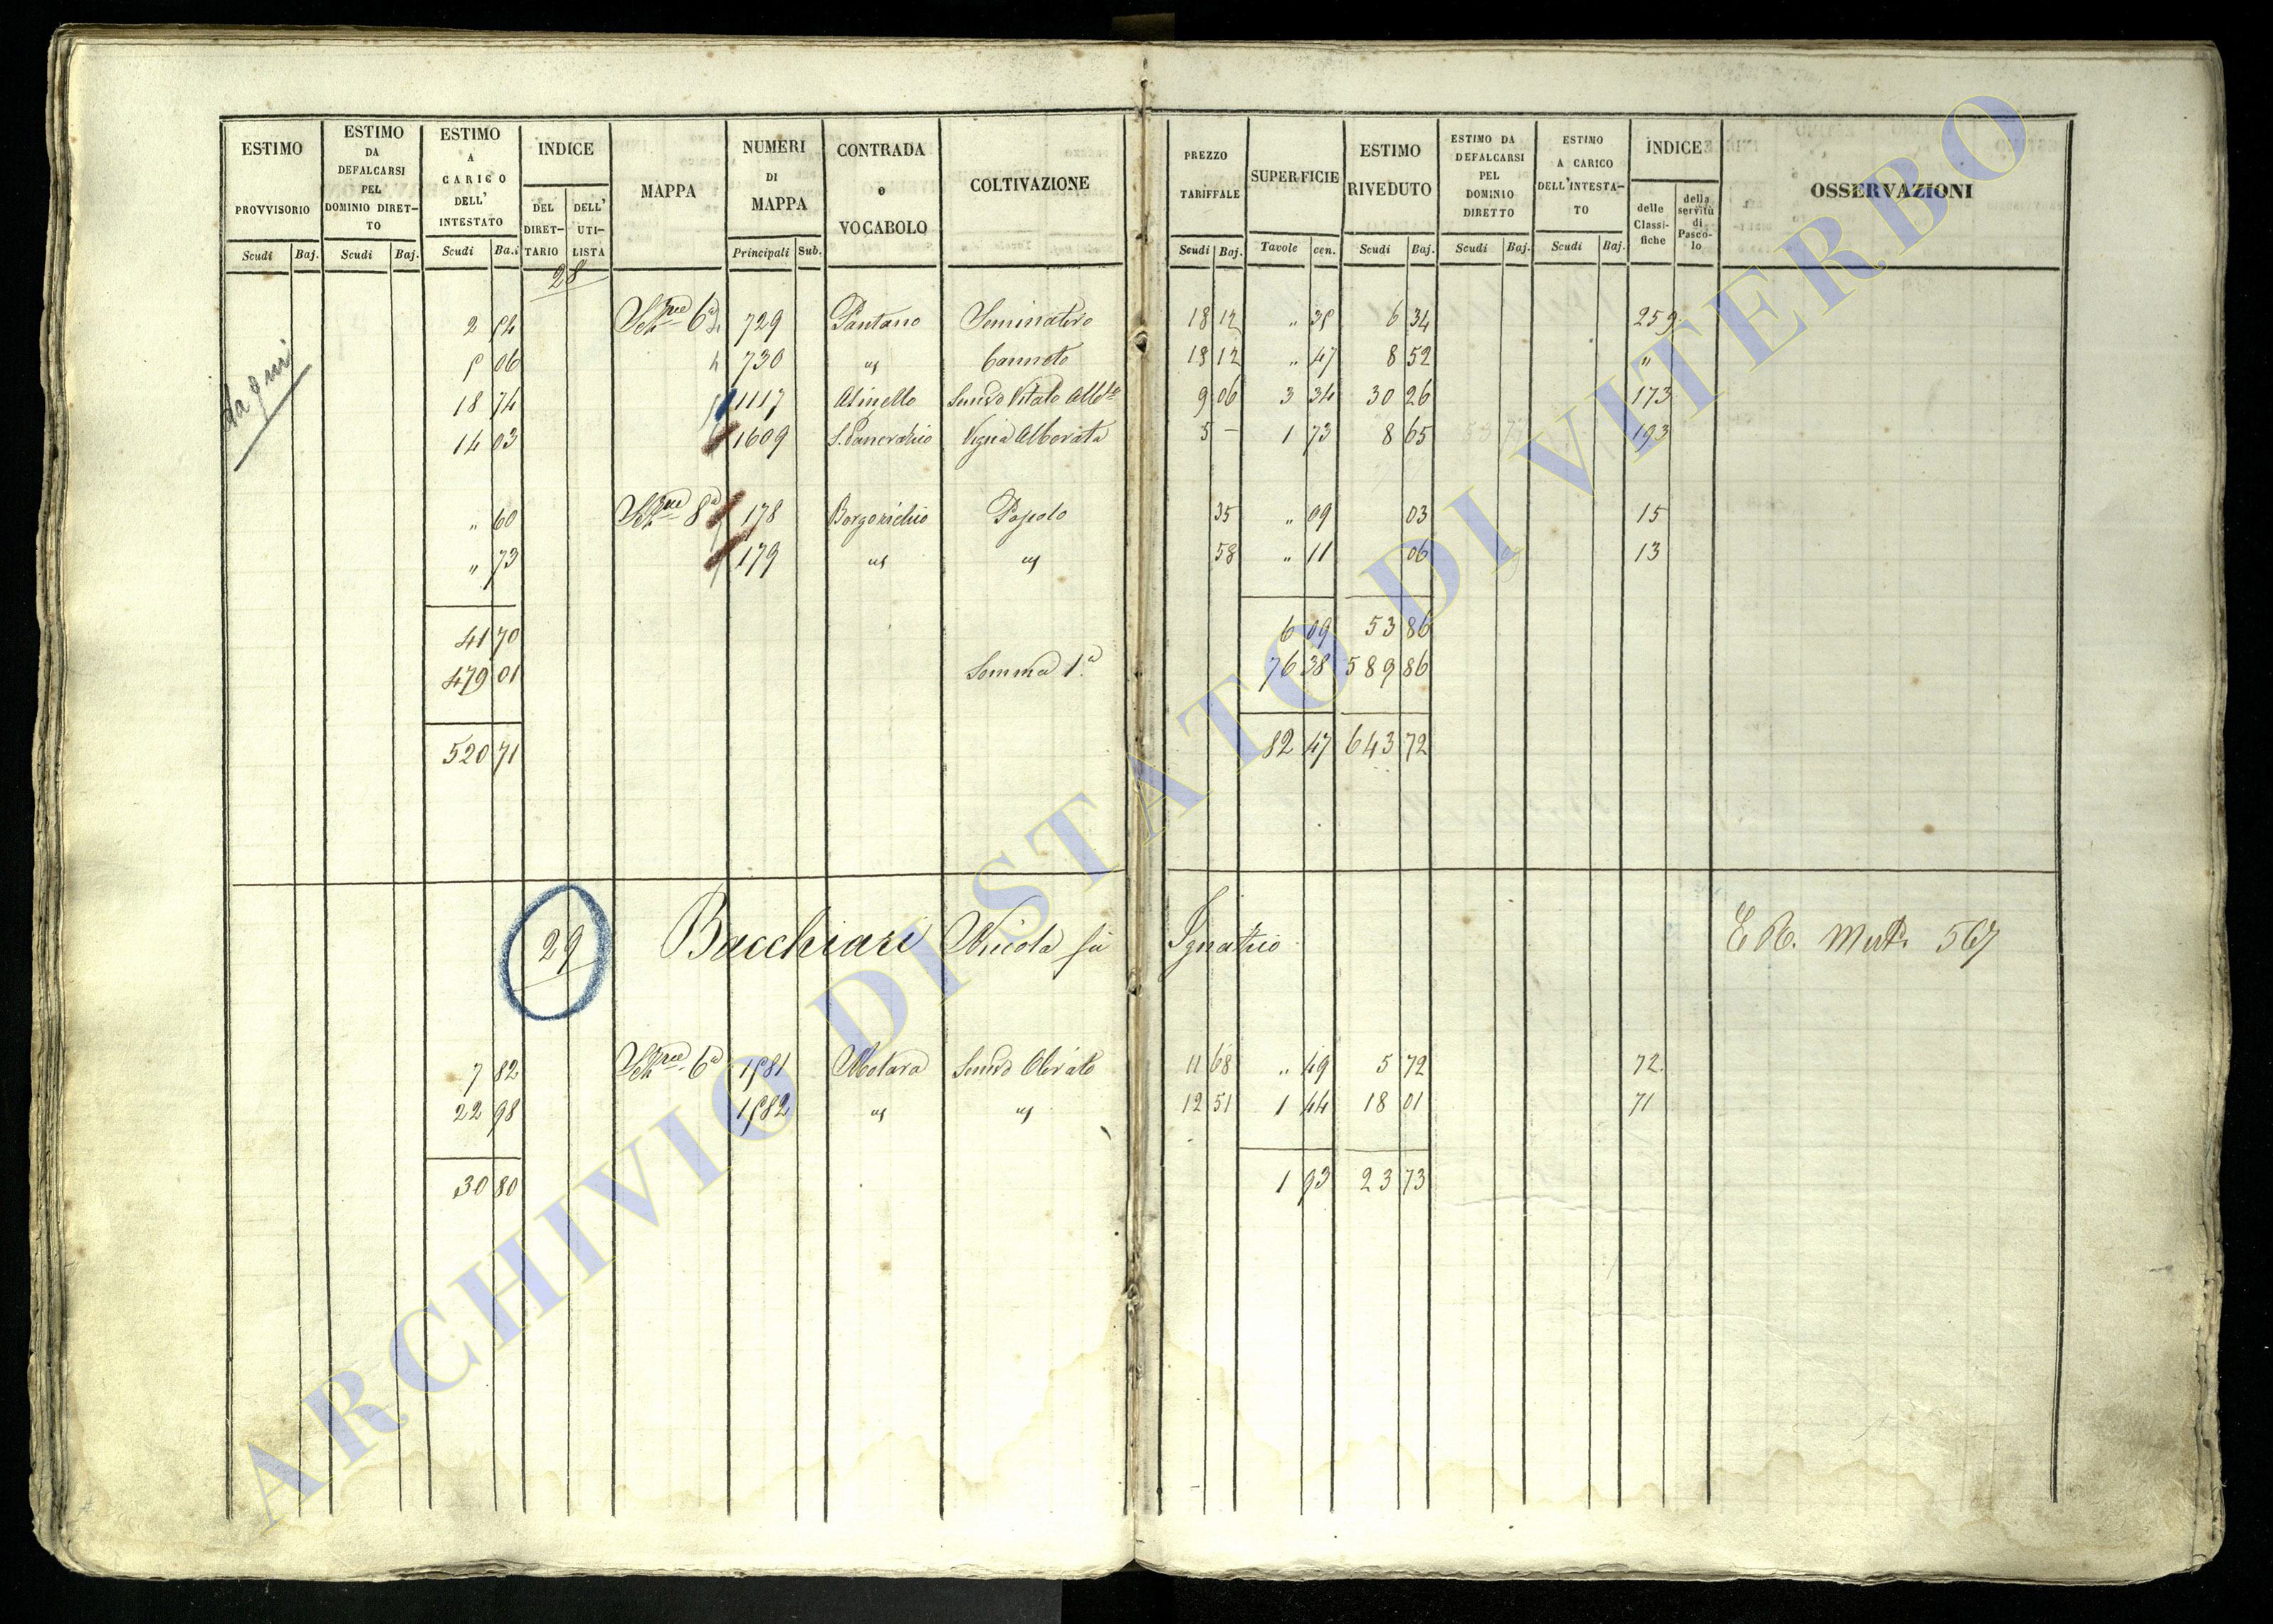 ESTIMO PROVVISORIO | ESTIMO DA DEFALCARSI PEL DOMINIO DIRET-TO | ESTIMO A CARICO DELL' INTESTATO | INDICE | MAPPA | NUMERI DI MAPPA | CONTRADA o VOCABOLO | COLTIVAZIONE | PREZZO TARIFFALE | SUPERFICIE | ESTIMO RIVEDUTO | ESTIMO DA DEFALCARSI PEL DOMINIO DIRETTO | ESTIMO A CARICO DELL'INTESTA-TO | INDICE | OSSERVAZIONI
DEL DIRET-TARIO | DELL' UTI-LISTA | delle Classi-fiche | della servitù di Pasco-lo
Scudi | Baj. | Scudi | Baj. | Scudi | Ba.i | Principali | Sub. | Scudi | Baj. | Tavole | cen. | Scudi | Baj. | Scudi | Baj. | Scudi | Baj.
28
2 54 | Sez.ne 6a | 729 | Pantano | Seminativo | 18 12 | " 35 | 6 34 | 259
5 06 | 730 | " | Canneto | 18 12 | " 47 | 8 52 | "
18 74 | 1117 | Alinello | Semvo Vitato Albto | 9 06 | 3 34 | 30 26 | 173
14 03 | 1609 | S. Pancrazio | Vigna Alborata | 5 - | 1 73 | 8 65 | 193
" 60 | Sez.ne 8a | 178 | | Pascolo | 35 | " 09 | 03 | 15
" 73 | 179 | " | " | 58 | " 11 | 06 | 13
41 70 | 6 09 | 53 86
479 01 | Somma 1a | 76 38 | 589 86
520 71 | 82 47 | 643 72
29 | Bacchiari Nicola fu Ignazio | Mut. 567
7 82 | Sez.ne 6a | 1581 | | Semvo Olivato | 11 68 | " 49 | 5 72 | 72
22 98 | 1582 | " | " | 12 51 | 1 44 | 18 01 | 71
30 80 | 1 93 | 23 73
ARCHIVIO DI STATO DI VITERBO